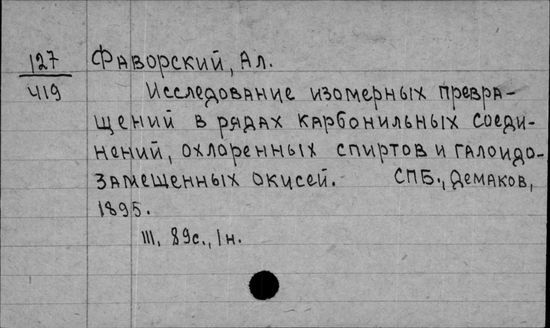 127 Фаворский, Ал.
419 Исследование изомерных превра-
щений в рядах карбонильных соеди-
нений, охлоренных спиртов и галоидо-
замещенных окисей. СПБ., Демаков,
1895.
III, 89с., 1н.